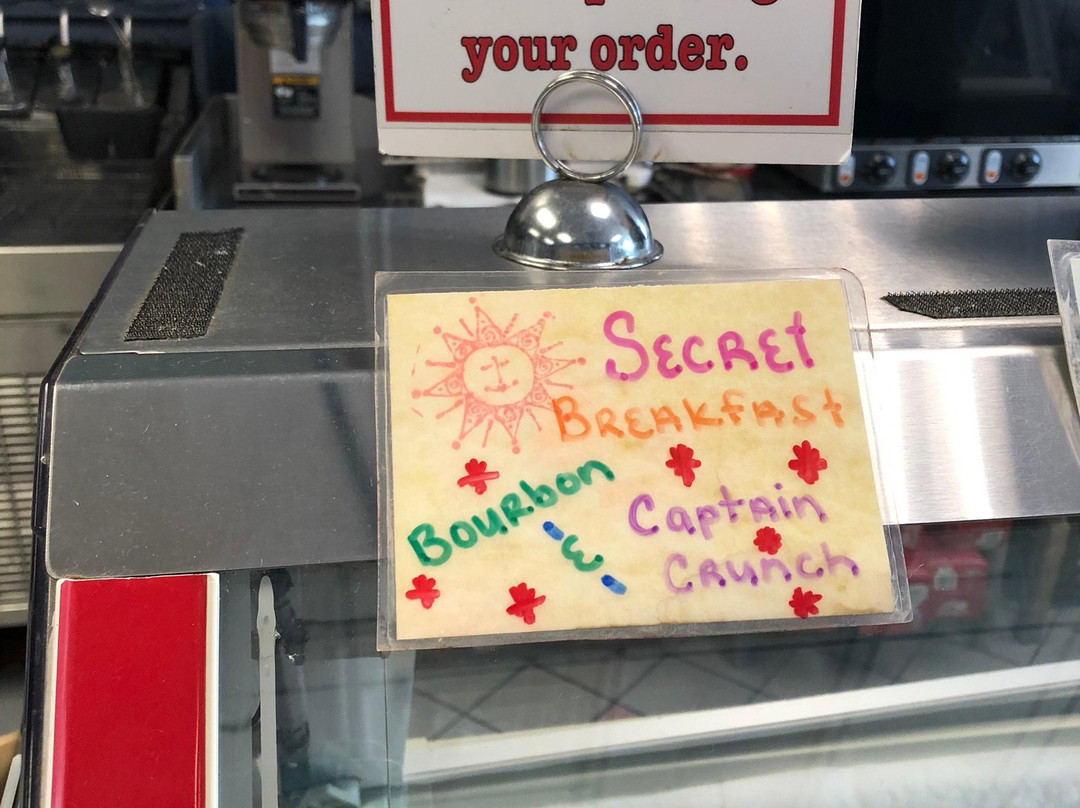 your order.
Secret
Breakfast
Bourbon
&
Captain
Crunch